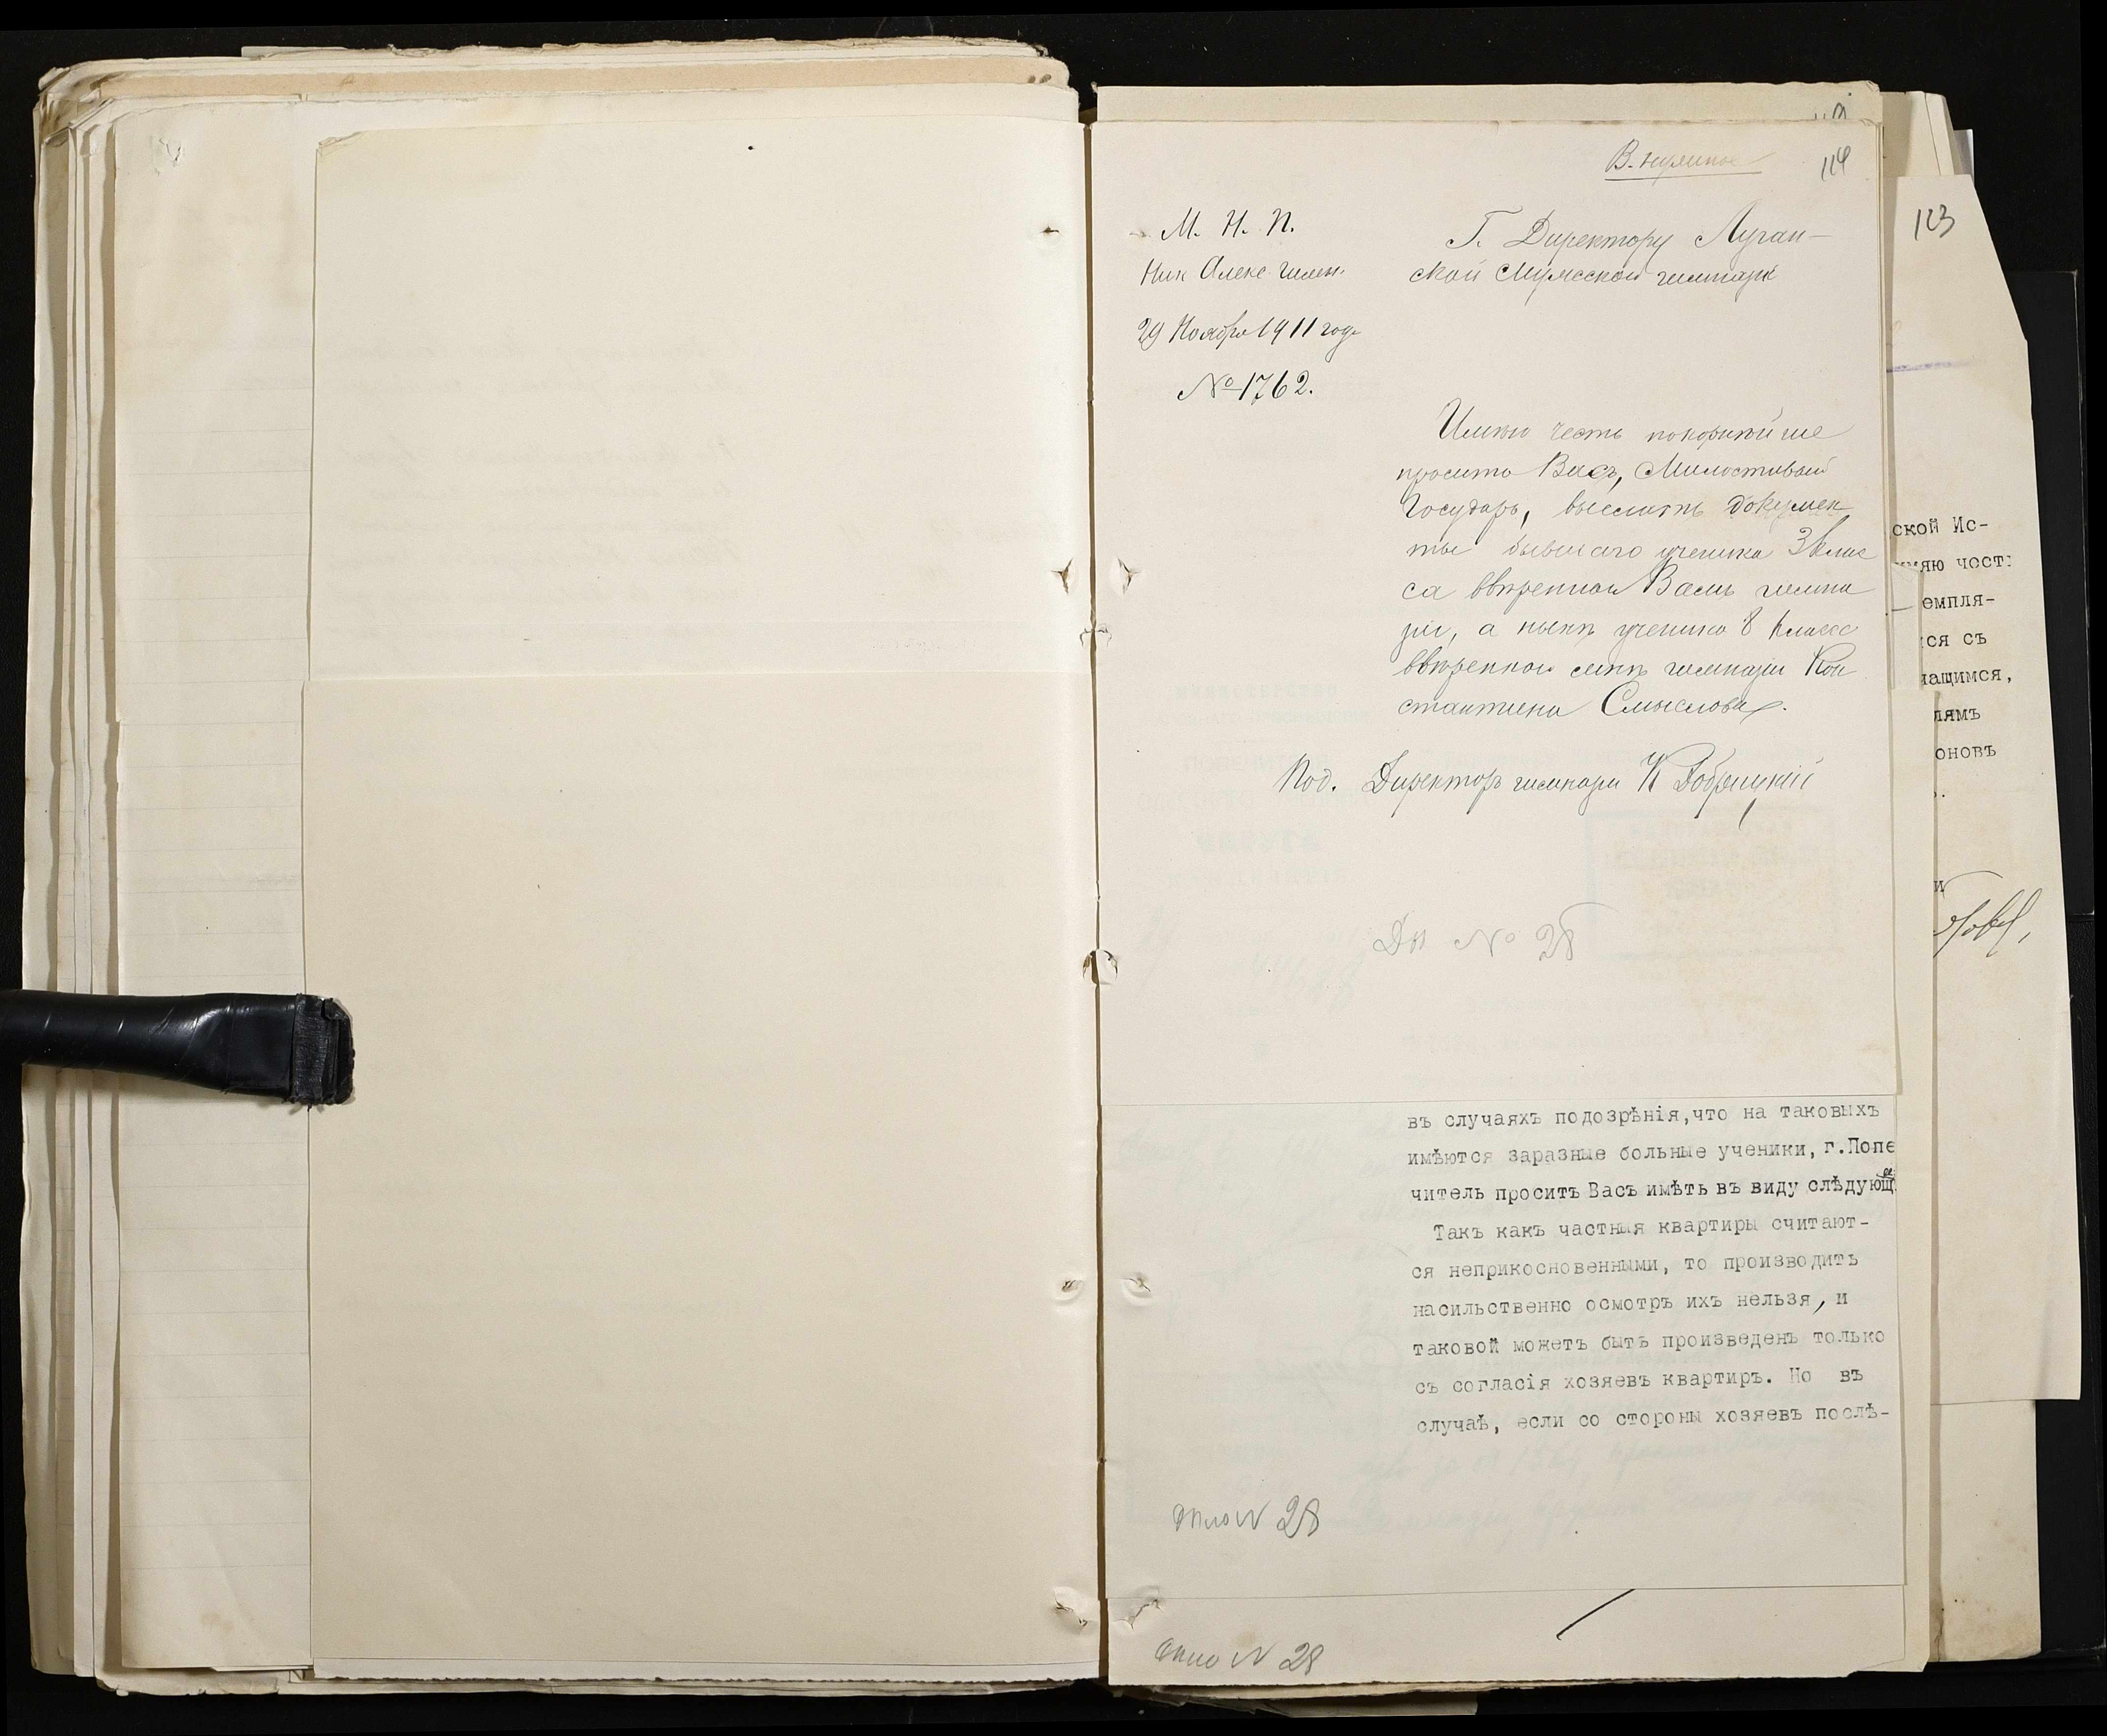 114
М. Н. П.
Ник Алекс гимн.
29 Ноября 1911 года
№ 1762.
Г. Директору Луган-
ской Мужской гимназіи
Имѣю честь покорнѣйше
просить Васъ, Милостивый
Государь, выслать докумен
ты бывшаго ученика 3 клас
са ввѣренной Вамъ гимна
зіи, а нынѣ ученика 8 класса
ввѣренной мнѣ гимназіи Кон
стантина Смыслова.
Под. Директоръ гимназіи К
№ 28
въ случаяхъ подозрѣнія, что на таковыхъ
имѣются заразные больные ученики, г.Попе
читель проситъ Васъ имѣть въ виду слѣдующ
ее
Такъ какъ частныя квартиры считают-
ся неприкосновенными, то производить
насильственно осмотръ ихъ нельзя, и
таковой можетъ быть произведенъ только
съ согласія хозяевъ квартиръ. Но въ
случаѣ, если со стороны хозяевъ послѣ-
дѣло N 28
дѣло N 28
123
ской Ис-
мѣю чость
емпля-
ся съ
чащимся,
лямъ
оновъ
и